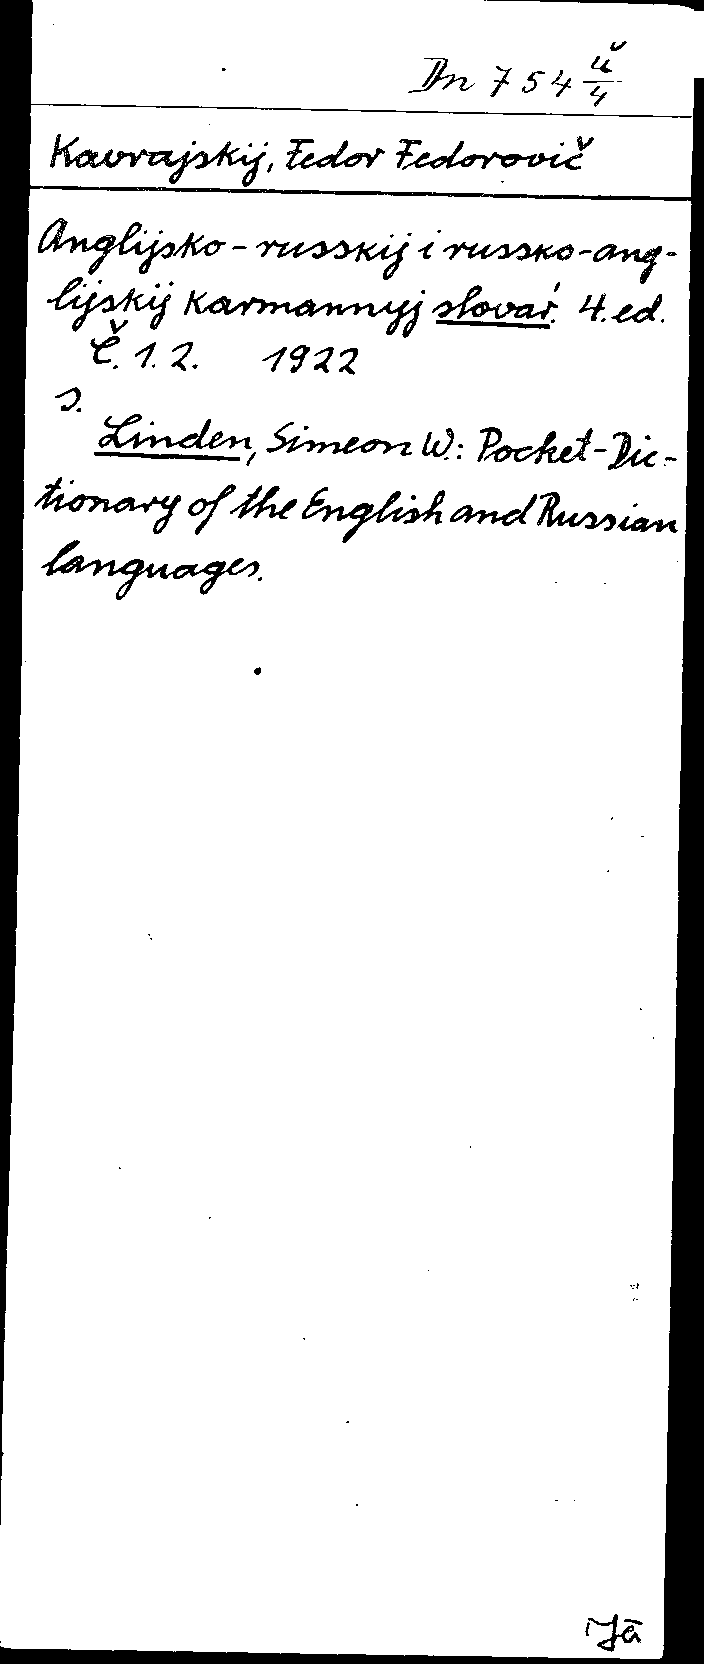 Dn 754 ŭ/4
Kavrajskij, Fedor Fedorovič
Anglijsko-russkij i russko-ang-
lijskij karmannyj slovaŕ. 4. ed.
Č. 1. 2. 1922
s.
Linden, Simeon W.: Pocket-Dic-
tionary of the English and Russian
languages.
Jä